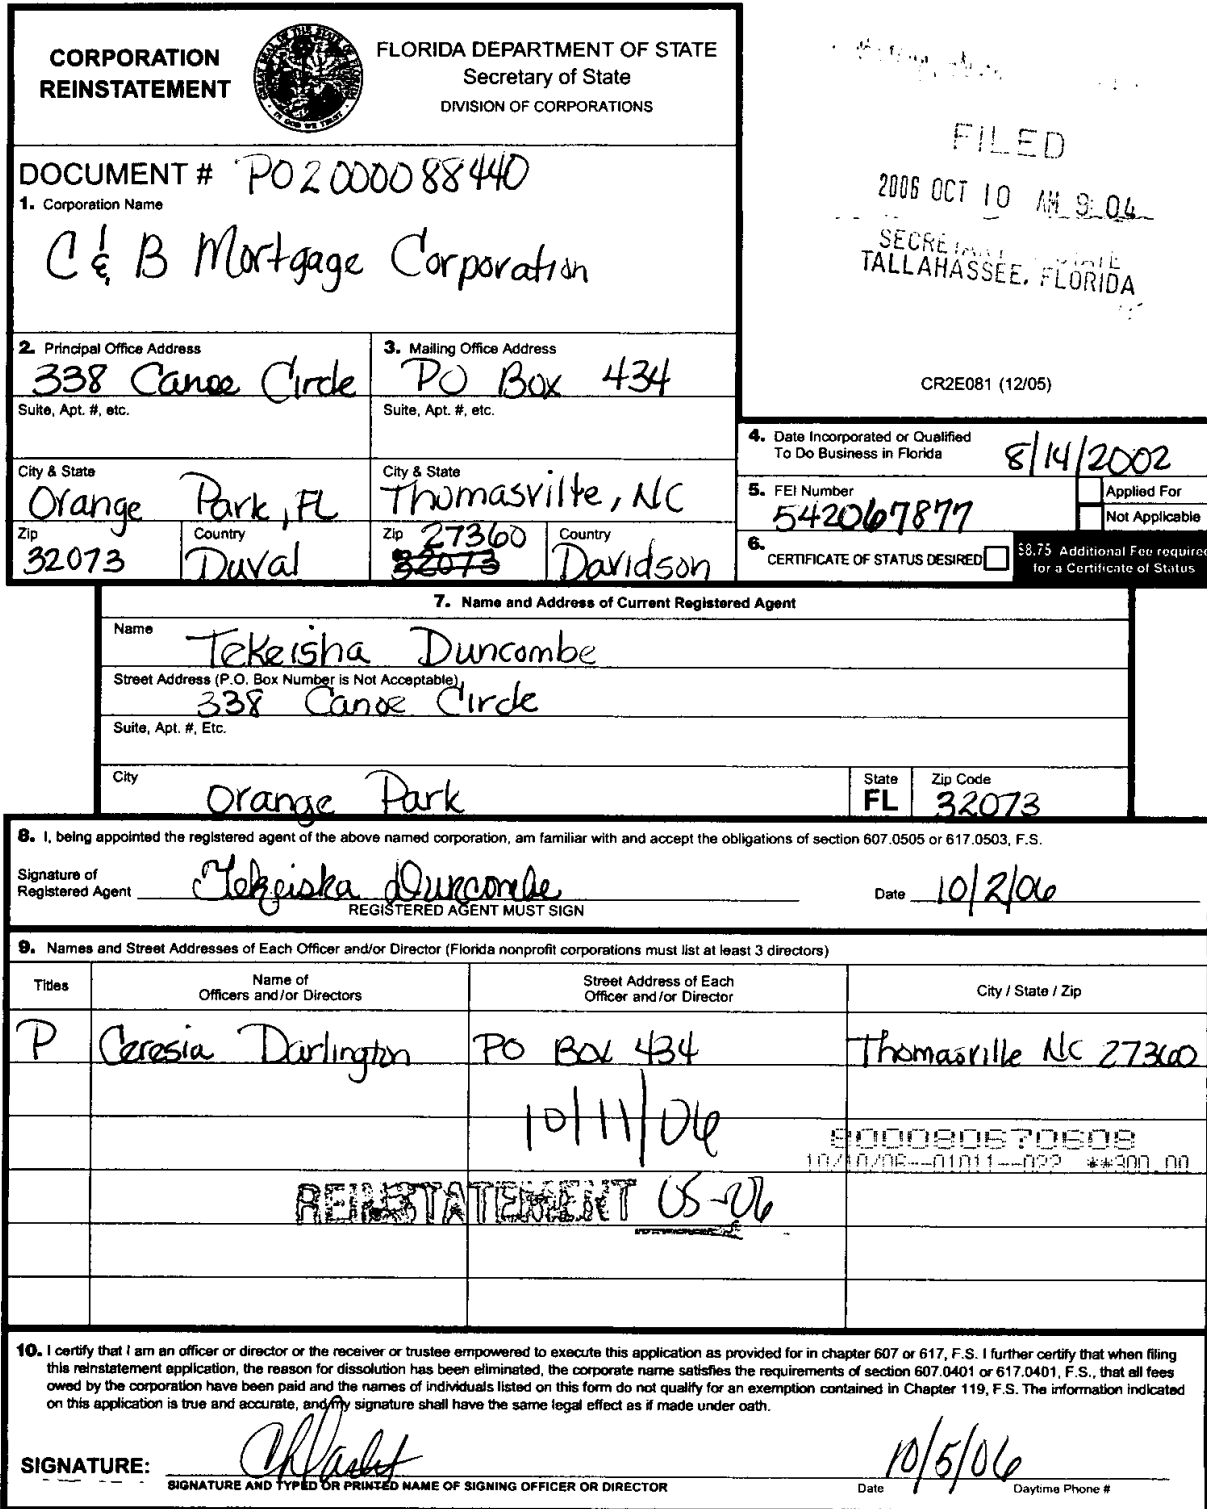 CORPORATION
REINSTATEMENT
FLORIDA DEPARTMENT OF STATE
Secretary of State
DIVISION OF CORPORATIONS
FILED
2006 OCT 10 AM 9:04
TALLAHASSEE, FLORIDA
DOCUMENT # P02000088440
1. Corporation Name
C & B Mortgage Corporation
CR2E081 (12/05)
2. Principal Office Address
338 Canoe Circle
Suite, Apt. #, etc.
City & State
Orange Park, FL
Zip
32073
Country
Duval
3. Mailing Office Address
PO Box 434
Suite, Apt. #, etc.
City & State
Thomasville, NC
Zip 27360
32073
Country
Davidson
4. Date Incorporated or Qualified
To Do Business in Florida 8/14/2002
5. FEI Number
542067877
Applied For
Not Applicable
6. CERTIFICATE OF STATUS DESIRED
$8.75 Additional Fee required
for a Certificate of Status
7. Name and Address of Current Registered Agent
Name
Tekeisha Duncombe
Street Address (P.O. Box Number is Not Acceptable)
338 Canoe Circle
Suite, Apt. #, Etc.
City
Orange Park
State
FL
Zip Code
32073
8. I, being appointed the registered agent of the above named corporation, am familiar with and accept the obligations of section 607.0505 or 617.0503, F.S.
Signature of
Registered Agent Tekeisha Duncombe
REGISTERED AGENT MUST SIGN
Date 10/2/06
9. Names and Street Addresses of Each Officer and/or Director (Florida nonprofit corporations must list at least 3 directors)
Titles
Name of
Officers and/or Directors
Street Address of Each
Officer and/or Director
City / State / Zip
P Ceresia Darlington PO Box 434 Thomasville NC 27360
10/11/06
800080670608
10/10/06--01011--022 **300.00
REINSTATEMENT 05-06
10. I certify that I am an officer or director or the receiver or trustee empowered to execute this application as provided for in chapter 607 or 617, F.S. I further certify that when filing
this reinstatement application, the reason for dissolution has been eliminated, the corporate name satisfies the requirements of section 607.0401 or 617.0401, F.S., that all fees
owed by the corporation have been paid and the names of individuals listed on this form do not qualify for an exemption contained in Chapter 119, F.S. The information indicated
on this application is true and accurate, and my signature shall have the same legal effect as if made under oath.
SIGNATURE:
SIGNATURE AND TYPED OR PRINTED NAME OF SIGNING OFFICER OR DIRECTOR
10/5/06
Date
Daytime Phone #